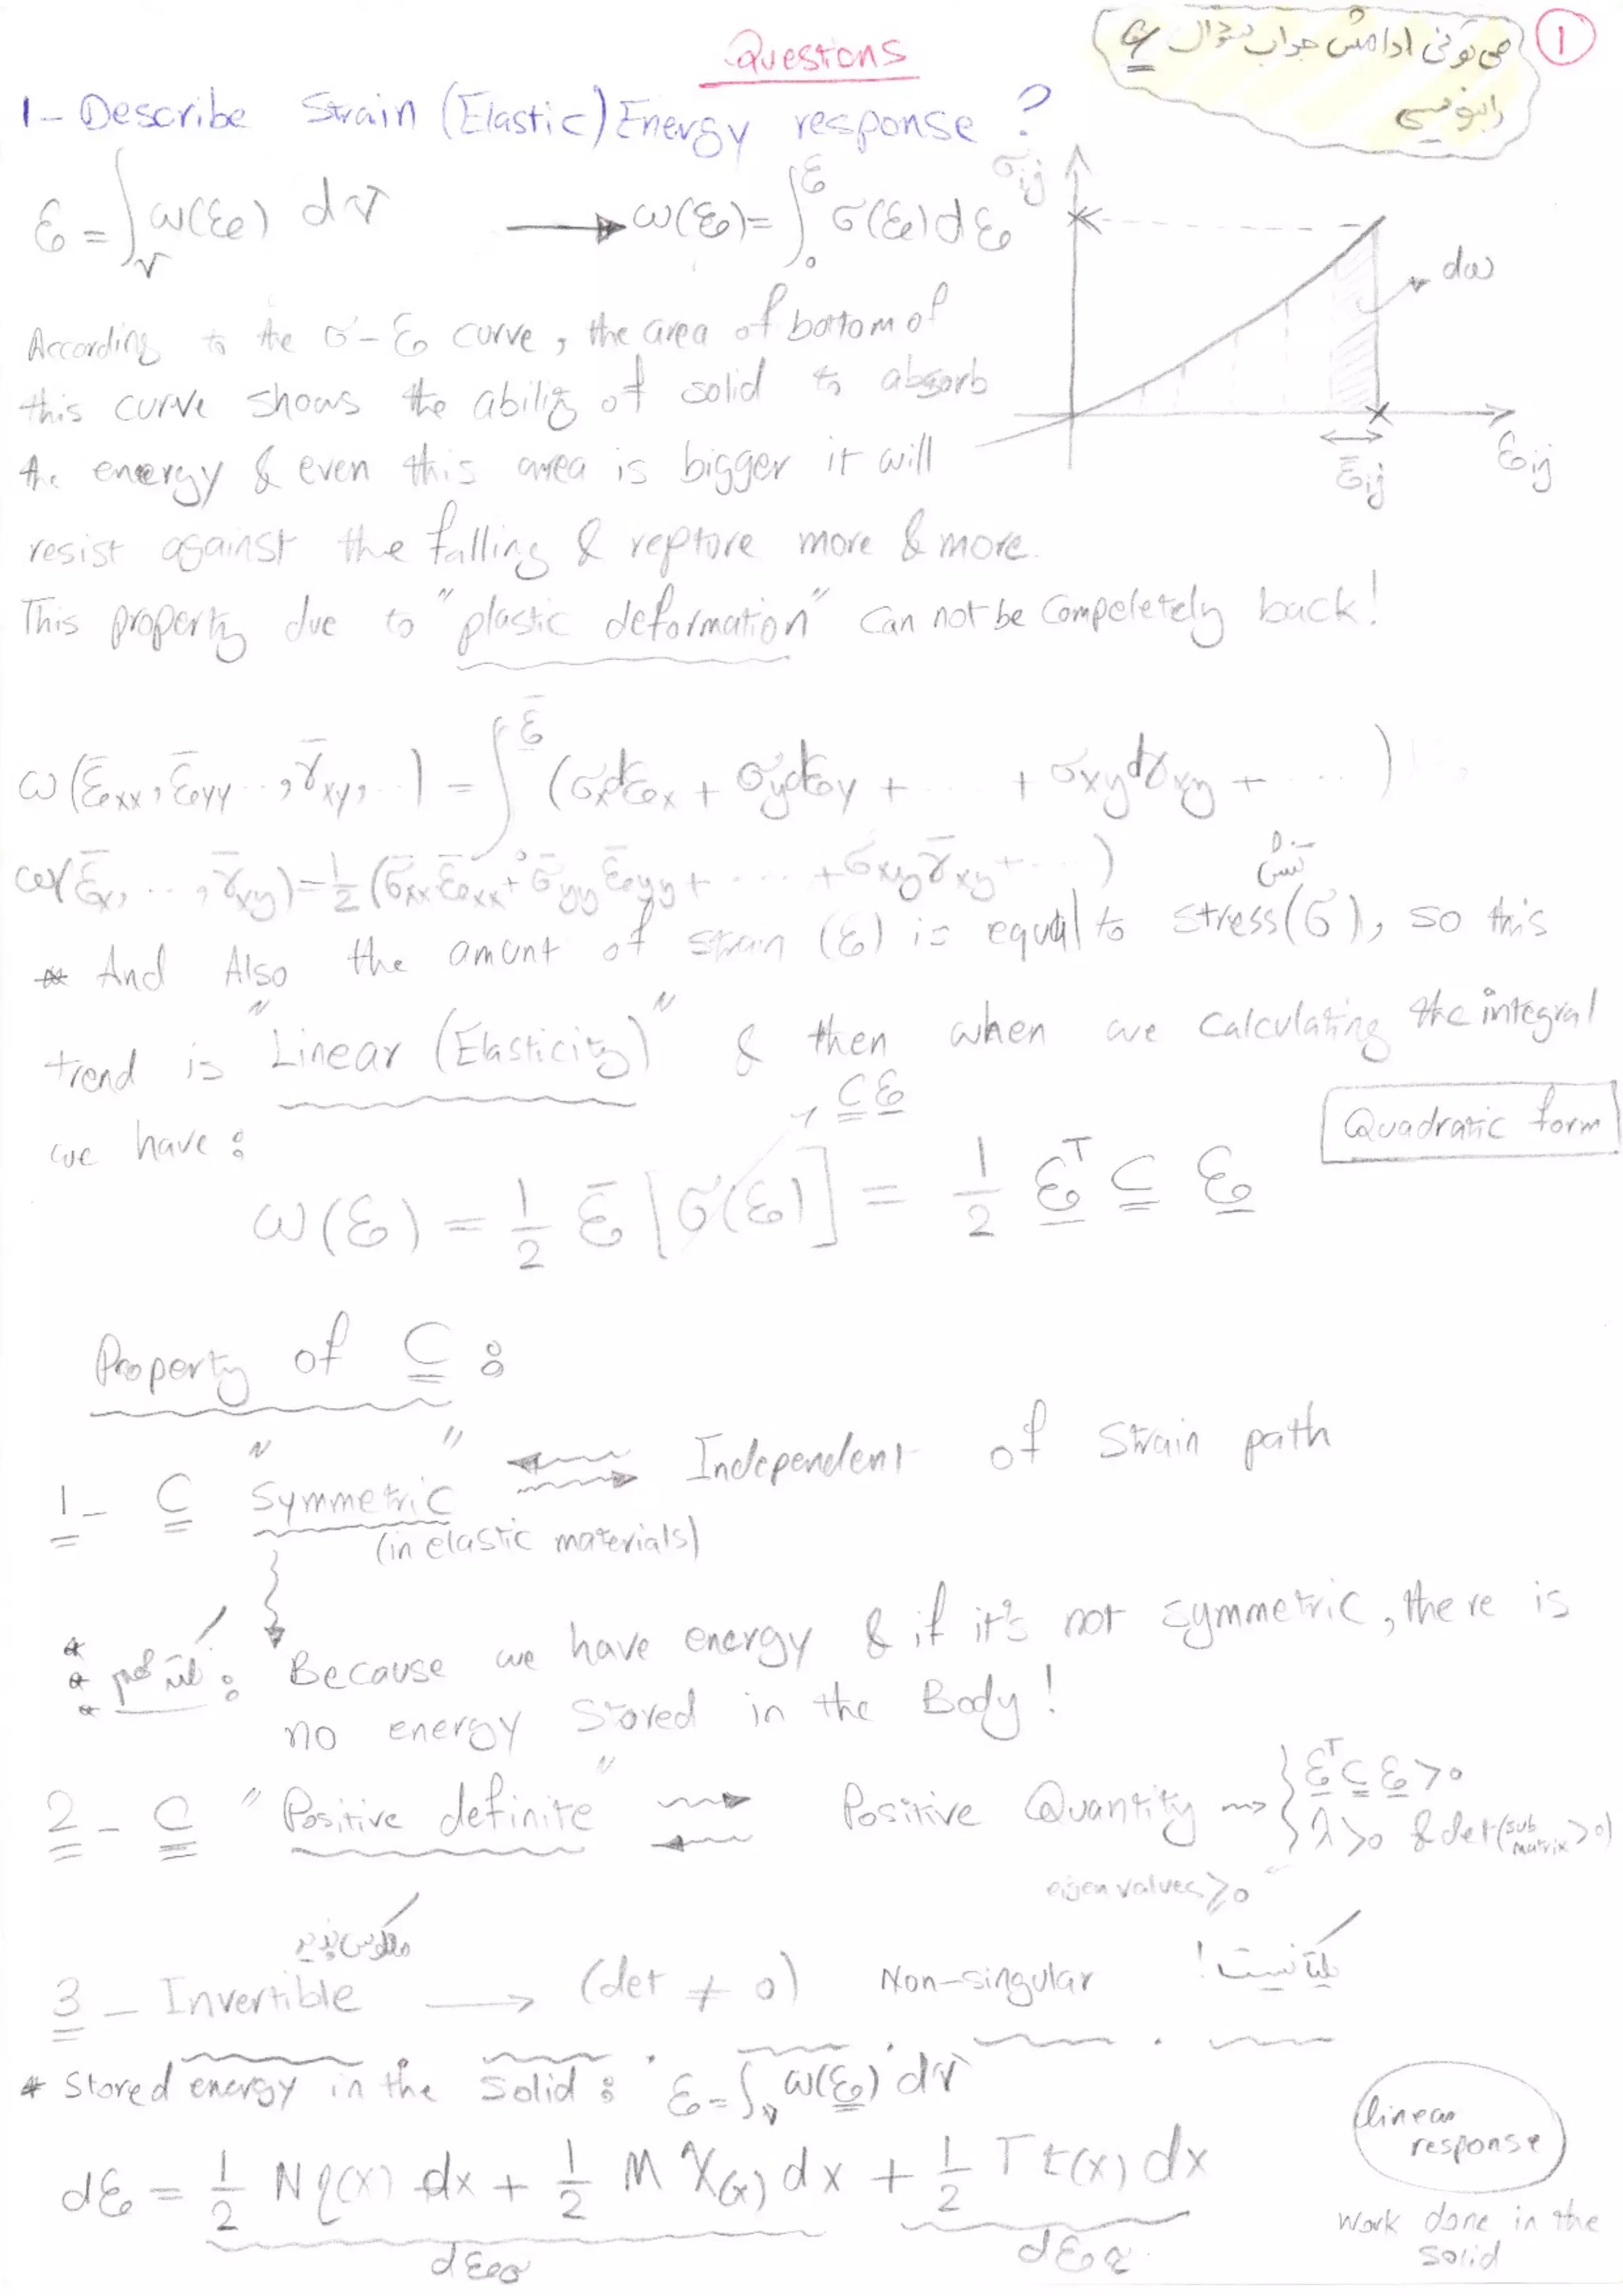 Questions
1
می تونی ادامش جواب سوال 4
رابنویسی
1- Describe Strain (Elastic) Energy response ?
ℰ = ∫_V ω(ε) dV → ω(ε) = ∫_0^ε σ(ε) dε
σij
dω
ε̄ij
εij
According to the σ-ε curve, the area of bottom of
this curve shows the ability of solid to absorb
the energy & even this area is bigger it will
resist against the falling & repture more & more.
This property due to "plastic deformation" can not be compeletely back!
ω(ε̄xx, ε̄yy ..., γ̄xy, ...) = ∫_0^ε̄ (σxdεx + σydεy + ... + σxydγxy + ...)
ω(ε̄x, ..., γ̄xy) = 1/2 (σ̄xx ε̄xx + σ̄yy ε̄yy + ... + σxy γ̄xy + ...)
تنش
* And Also the amunt of strain (ε) is equal to stress(σ), so this
trend is "Linear (Elasticity)" & then when we calculating the integral
we have :
C ε
Quadratic form
ω(ε) = 1/2 ε̄ [σ(ε)] = 1/2 ε^T C ε
Property of C :
1- C "Symmetric" ⇄ Independent of Strain path
(in elastic materials)
Because we have energy & if it's not symmetric, there is
no energy stored in the Body !
2- C "Positive definite" ⇄ Positive Quantity → { ε^T C ε > 0
λ > 0 & det(sub matrix > 0)
eigen values ≥ 0
معکوس پذیر
3- Invertible → (det ≠ 0) Non-singular
* Stored energy in the Solid : ℰ = ∫_V ω(ε) dV
linear
response
dℰ = 1/2 N η(x) dx + 1/2 M χ(x) dx + 1/2 T t(x) dx
work done in the
solid
dℰσ
dℰτ